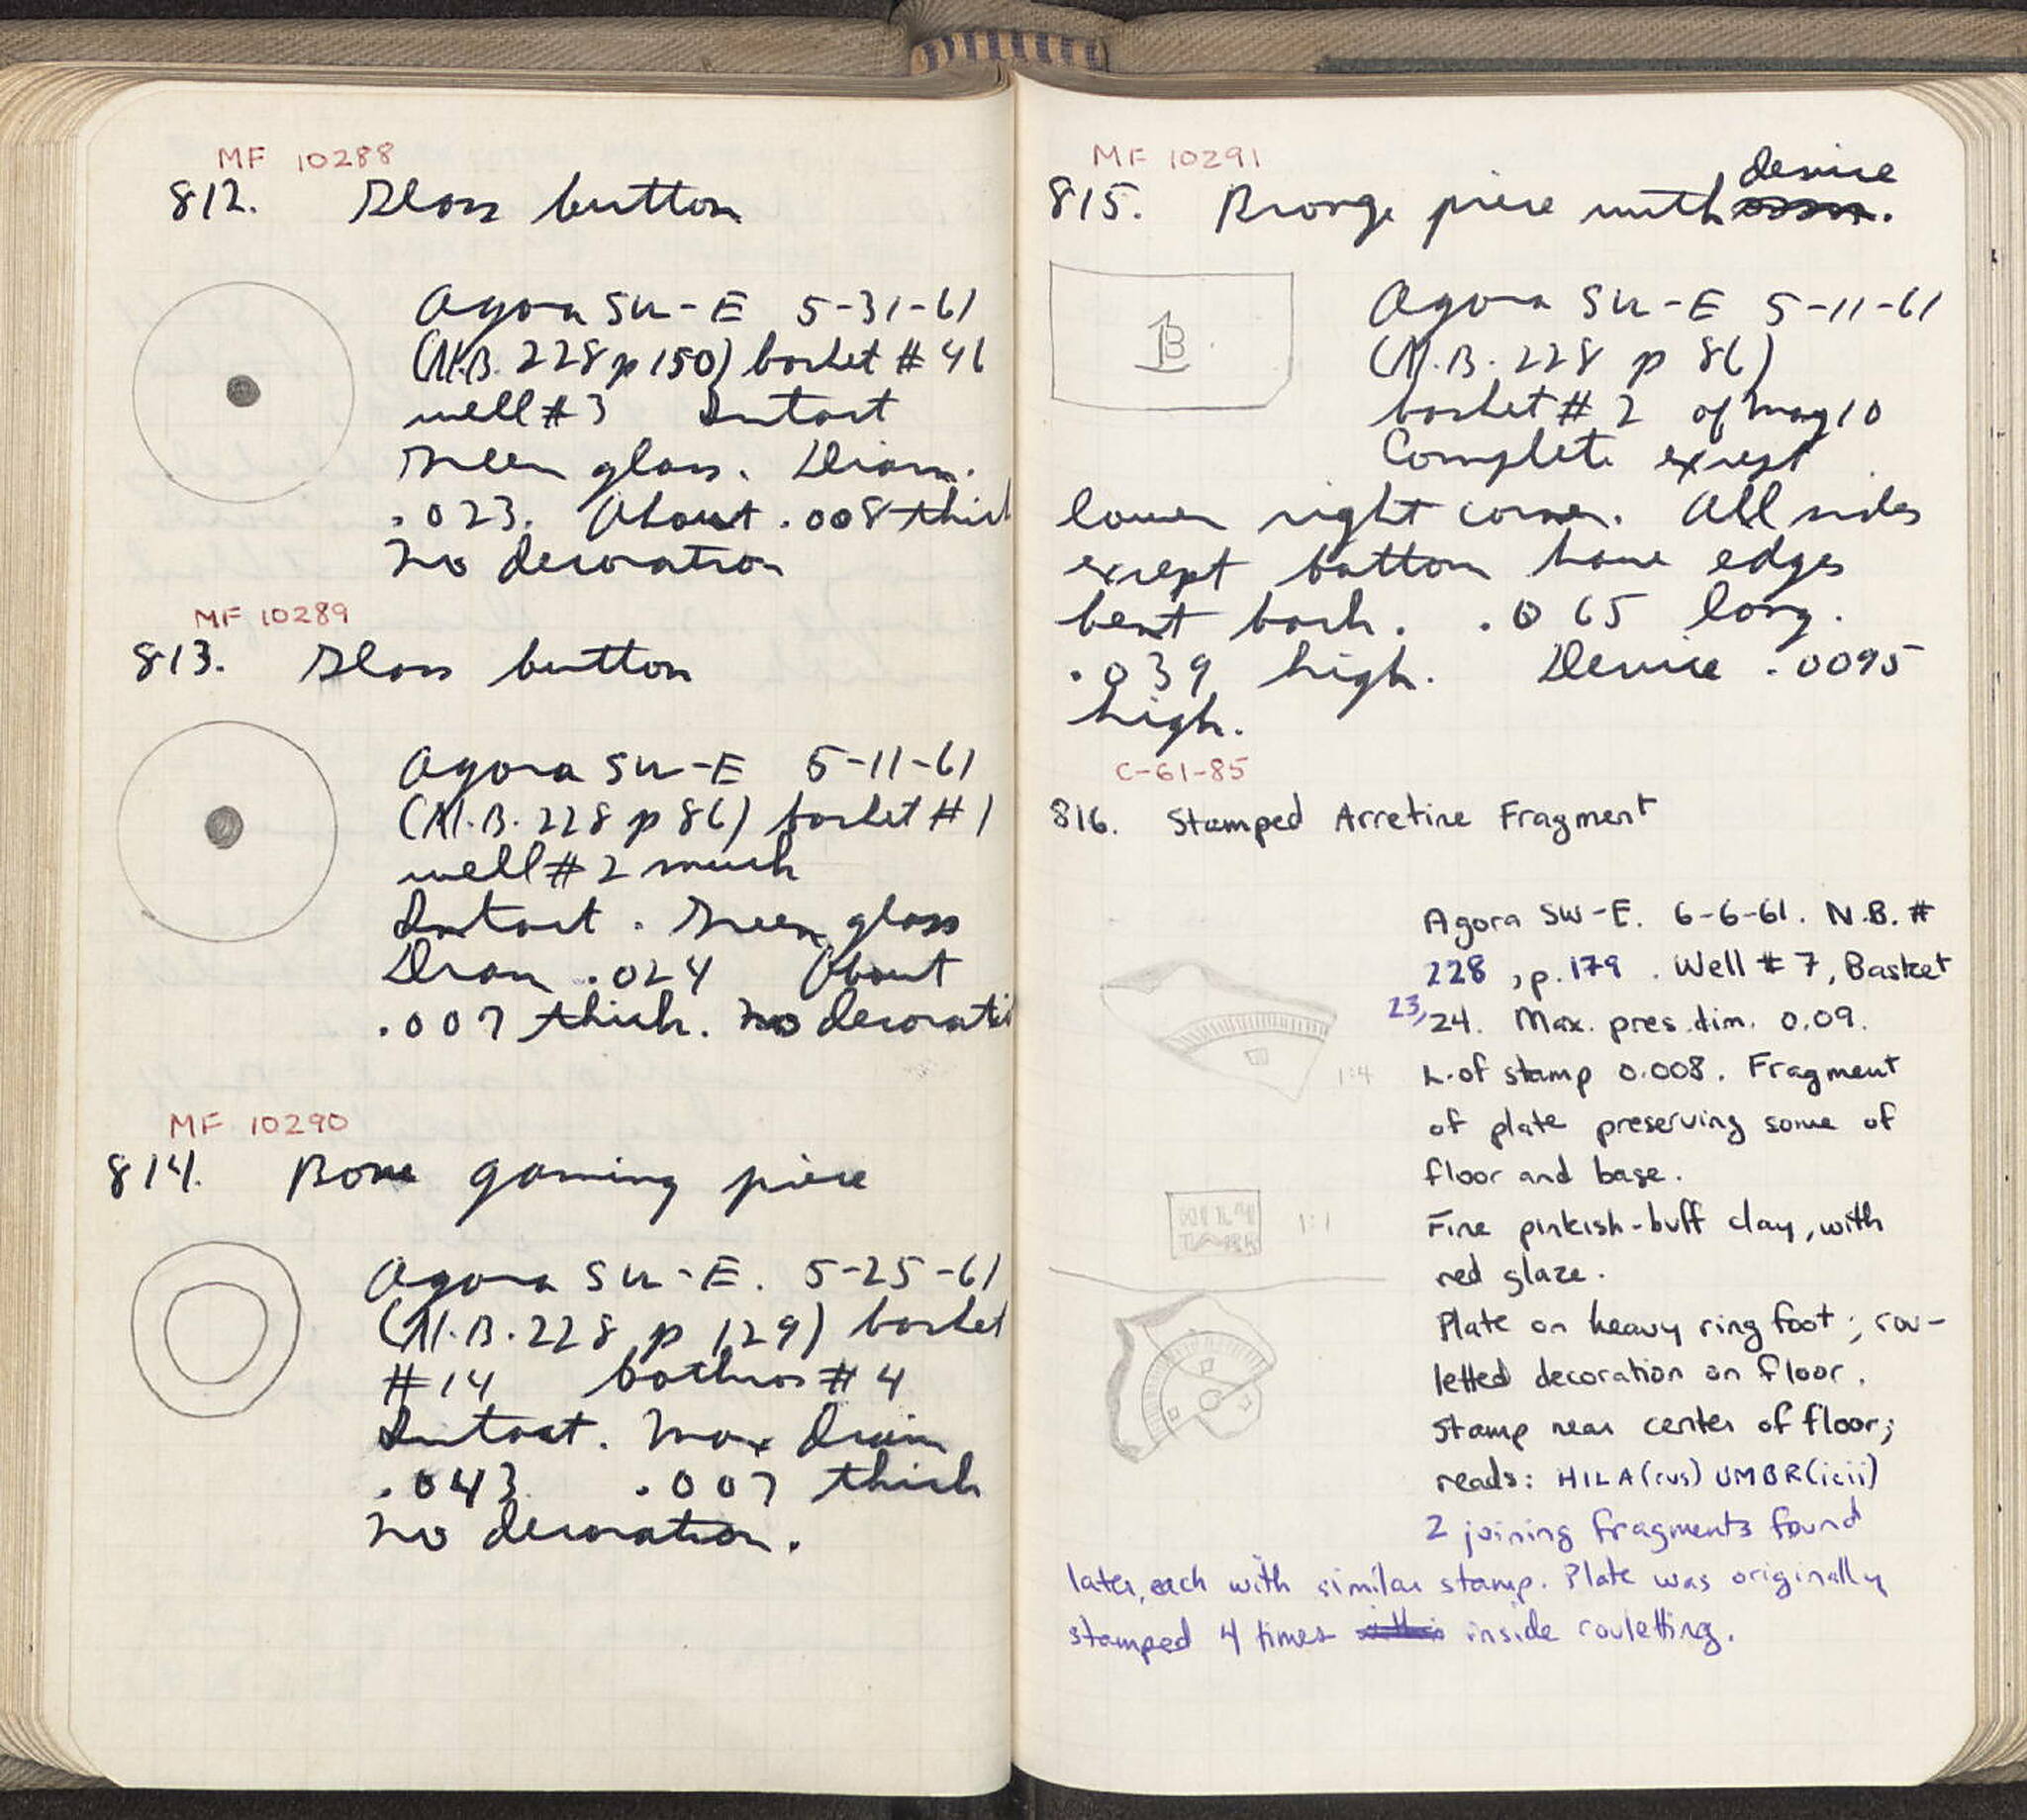 MF 10288
812. Glass button
Agora SW-E 5-31-61
(N.B. 228 p 150) basket # 41
well # 3 Intact
Green glass. Diam.
.023. About .008 thick
No decoration
MF 10289
813. Glass button
Agora SW-E 5-11-61
(N.B. 228 p 86) basket # 1
well # 2 much
Intact. Green glass
Diam .024 About
.007 thick. No decorati
MF 10290
814. Bone gaming piece
Agora SW-E. 5-25-61
(N.B. 228 p 129) basket
# 14 bothros # 4
Intact. Max Diam
.043 .007 thick
No decoration.
MF 10291
device
815. Bronze piece with .
B
Agora SW-E 5-11-61
(N.B. 228 p 86)
basket # 2 of May 10
Complete except
lower right corner. All sides
except bottom have edges
bent back. .065 long.
.039 high. Device .0095
high.
C-61-85
816. Stamped Arretine Fragment
Agora SW-E. 6-6-61. N.B. #
228, p. 179. Well # 7, Basket
23, 24. Max. pres. dim. 0.09.
1:4
L. of stamp 0.008. Fragment
of plate preserving some of
floor and base.
1:1
Fine pinkish-buff clay, with
red glaze.
Plate on heavy ring foot; rou-
letted decoration on floor.
Stamp near center of floor;
reads: HILA(rus) UMBR(icii)
2 joining fragments found
later, each with similar stamp. Plate was originally
stamped 4 times inside rouletting.